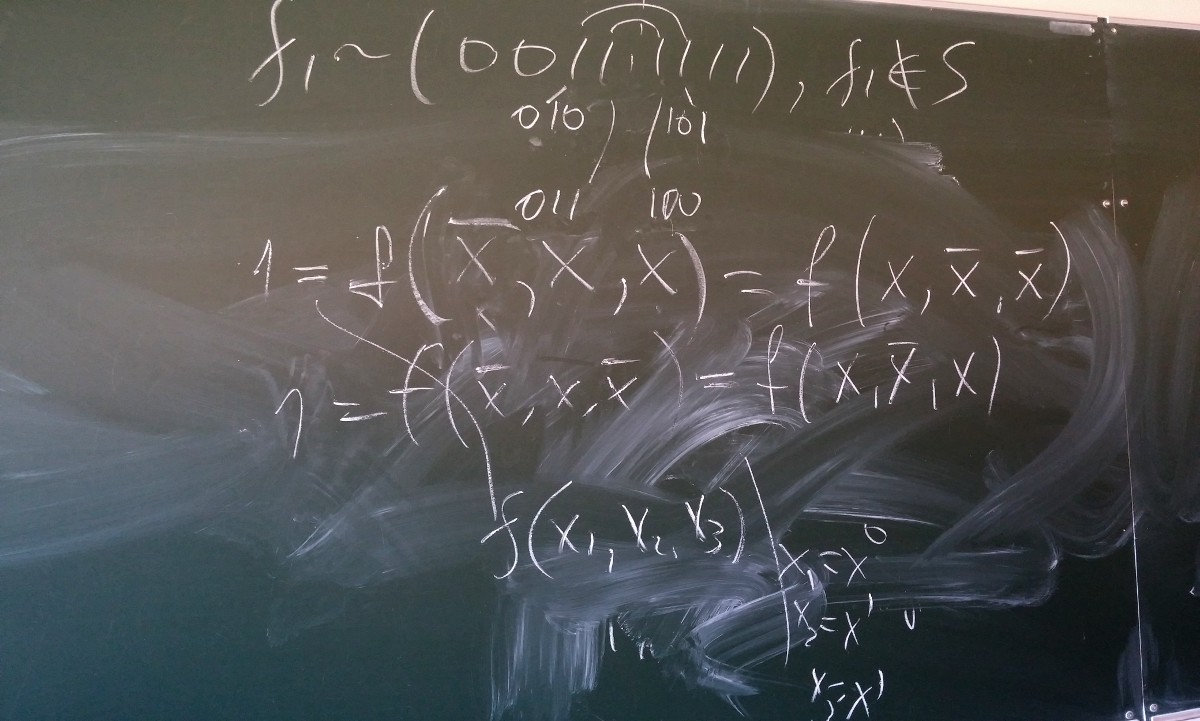 f₁ ~ (0011111111), f₁ ∉ S
010 101
011 100
1 = f(x̅, x, x) = f(x, x̅, x̅)
1 = f(x̅, x, x̅) = f(x, x̅, x)
f(x₁, x₂, x₃) | x₁ = x⁰
x₂ = x¹
x₃ = x¹